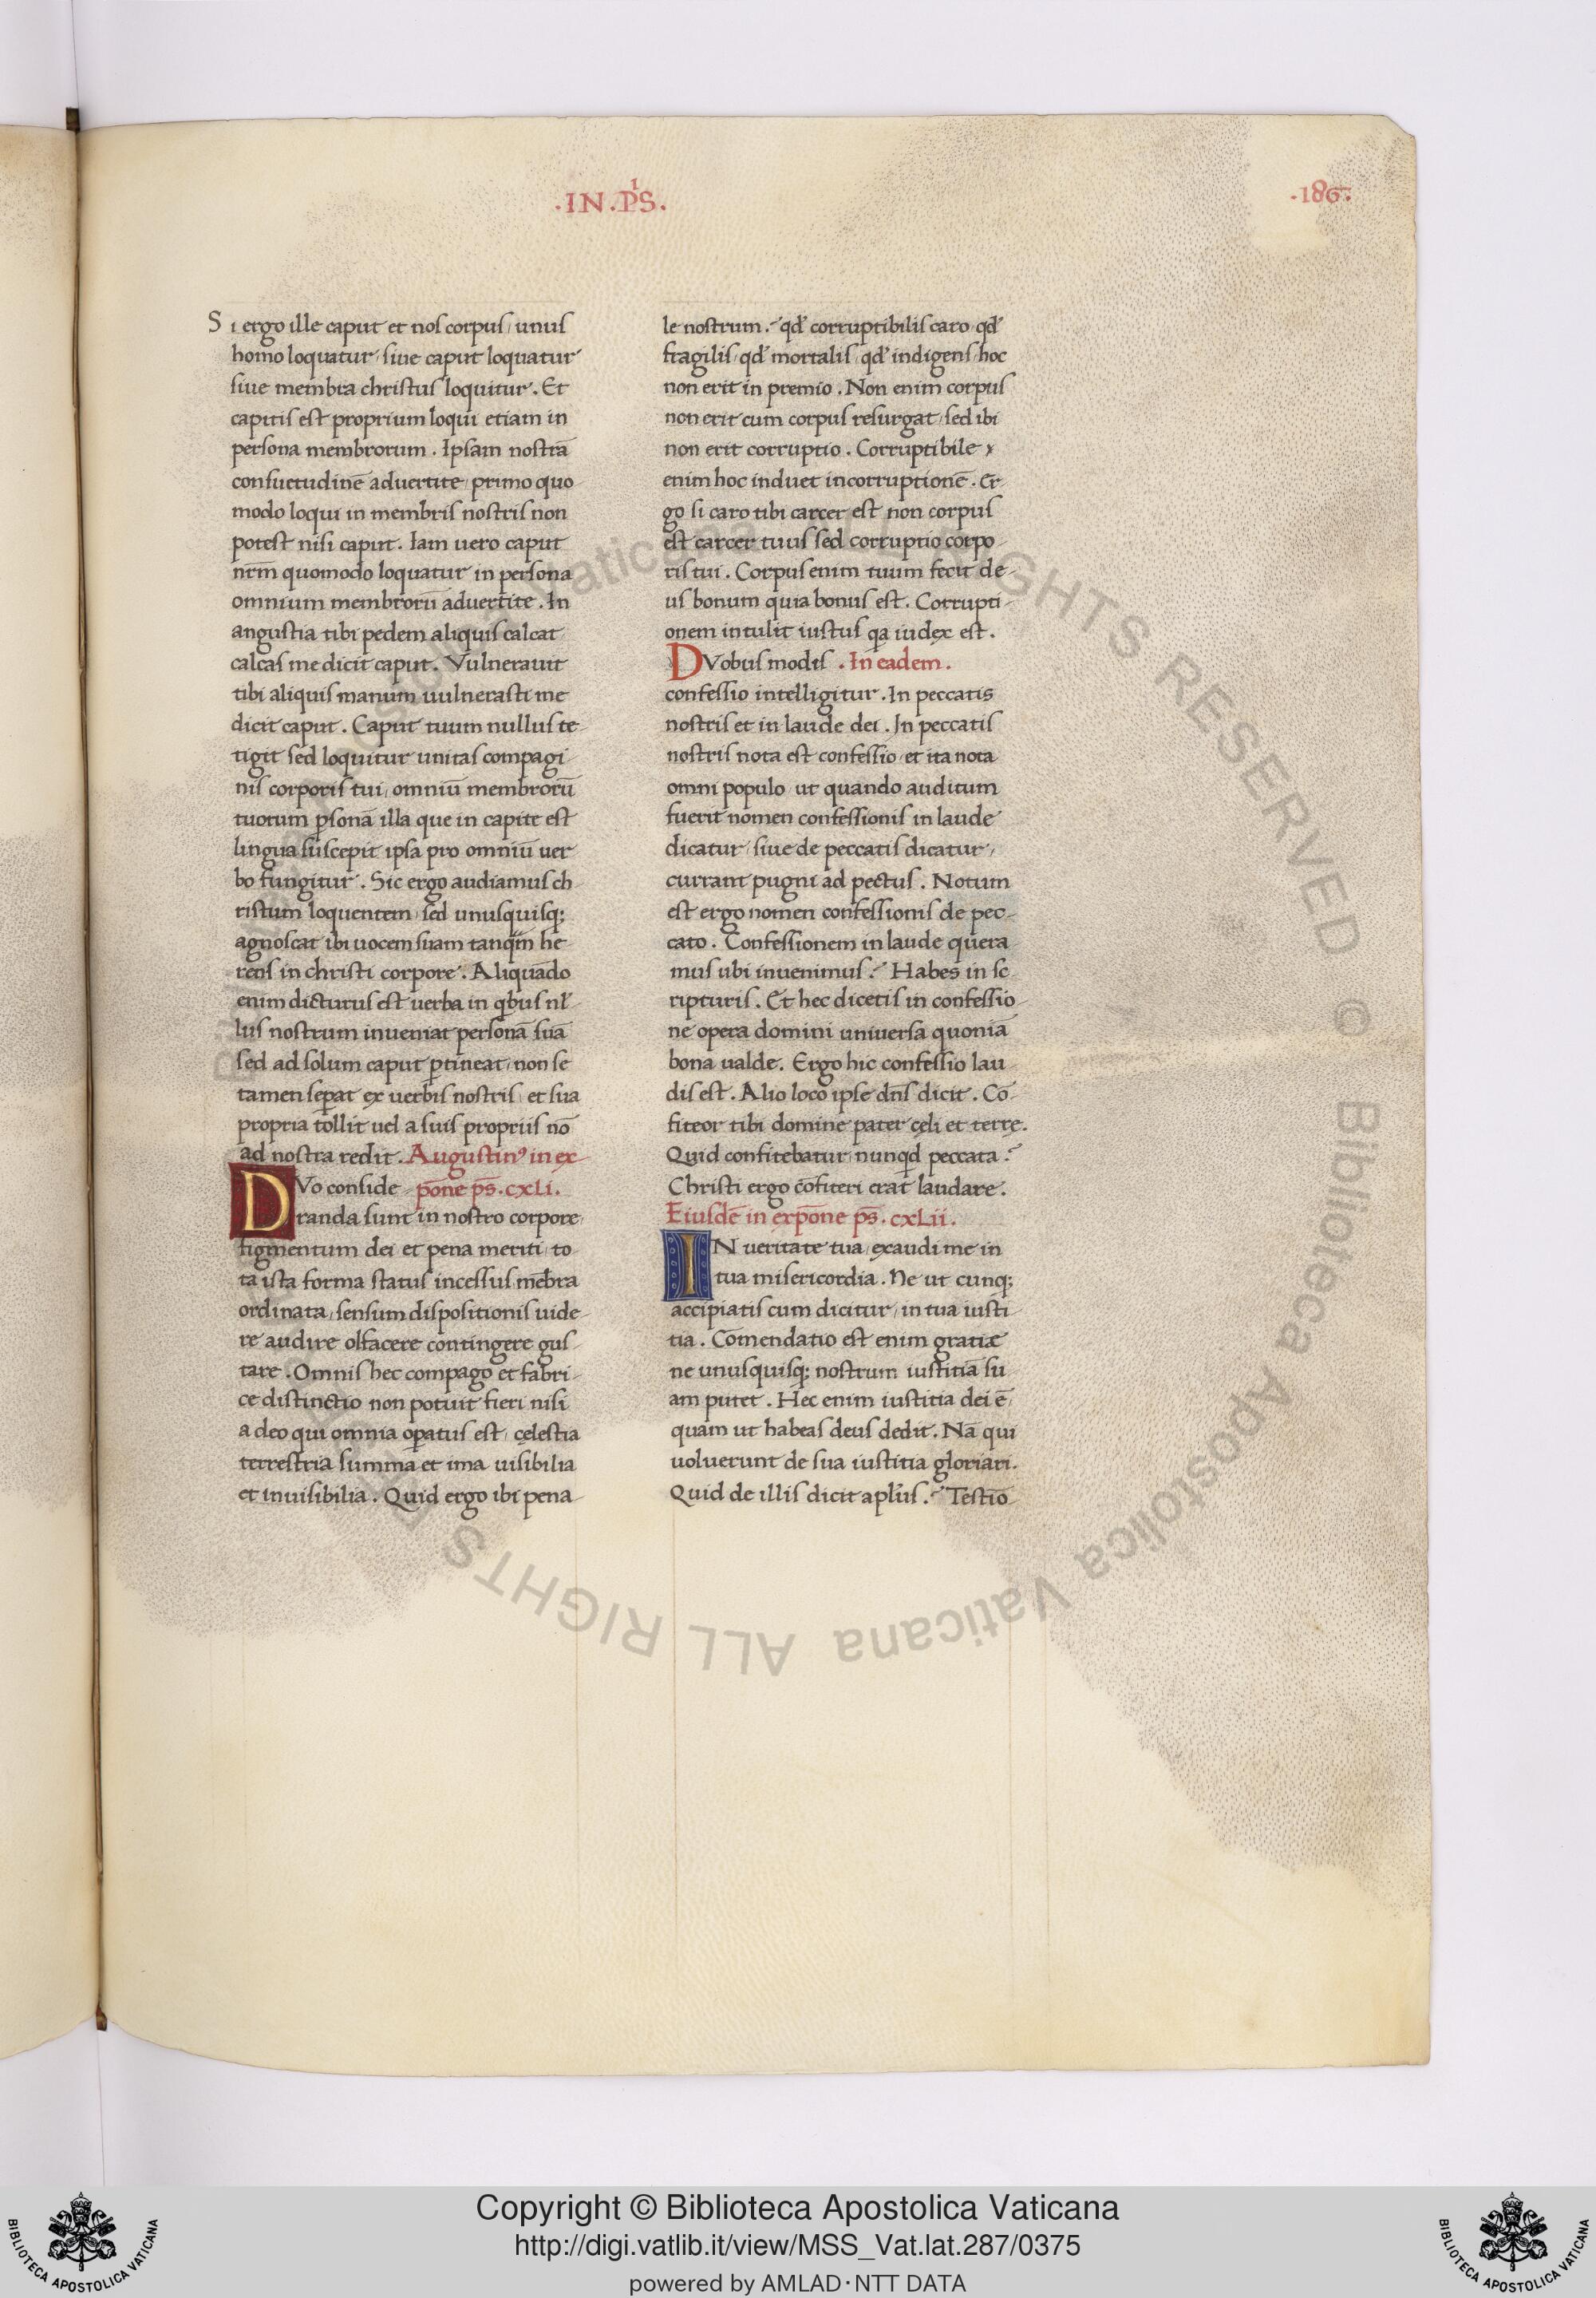 .IN.PͥS.
.186.
Si ergo ille caput et nos corpus, unus
homo loquatur, siue caput loquatur
siue membra christus loquitur. Et
capitis est proprium loqui etiam in
persona membrorum. Ipsam nostrā
consuetudinē aduertite, primo quo-
modo loqui in membris nostris non
potest nisi caput. Iam uero caput
nrm̄ quomodo loquatur in persona
omnium membrorū aduertite. In
angustia tibi pedem aliquis calcat
calcas me dicit caput. Vulnerauit
tibi aliquis manum uulnerasti me
dicit caput. Caput tuum nullus te-
tigit sed loquitur unitas compagi-
nis corporis tui, omniū membrorū
tuorum ꝑsonā illa que in capite est
lingua suscepit ipsa pro omniū uer
bo fungitur. Sic ergo audiamus ch-
ristum loquentem, sed unusquisq;
agnoscat ibi uocem suam tanqm̄ he-
rens in christi corpore. Aliquādo
enim dicturus est uerba in qbus nl-
lus nostrum inueniat personā suā
sed ad solum caput ꝑtineat, non se
tamen seꝑat ex uerbis nostris, et sua
propria tollit uel a suis propriis nō
ad nostra redit. Augustinꝰ in ex-
DVo conside- pōne ps̄. cxLi.
randa sunt in nostro corpore,
figmentum dei et pena meriti, to-
ta ista forma status incessus, mēbra
ordinata, sensum dispositionis uide-
re audire olfacere contingere gus-
tare. Omnis hec compago et fabri-
ce distinctio non potuit fieri nisi
a deo qui omnia oꝑatus est, cęlestia
terrestria summa et ima uisibilia
et inuisibilia. Quid ergo ibi pena-
le nostrum? qd' corruptibilis caro, qd'
fragilis, qd' mortalis, qd' indigens, hoc
non erit in premio. Non enim corpus
non erit cum corpus resurgat, sed ibi
non erit corruptio. Corruptibile
enim hoc induet incorruptionē. Er-
go si caro tibi carcer est non corpus
est carcer tuus sed corruptio corpo-
ris tui. Corpus enim tuum fecit de-
us bonum quia bonus est. Corrupti-
onem intulit iustus qa iudex est.
DVobus modis. In eadem.
confessio intelligitur. In peccatis
nostris et in laude dei. In peccatis
nostris nota est confessio, et ita nota
omni populo ut quando auditum
fuerit nomen confessionis in laude
dicatur, siue de peccatis dicatur,
currant pugni ad pectus. Notum
est ergo nomen confessionis de pec-
cato. Confessionem in laude quera-
mus ubi inuenimus? Habes in sc-
ripturis. Et hec dicetis in confessio-
ne opera domini uniuersa quoniā
bona ualde. Ergo hic confessio lau-
dis est. Alio loco ipse dn̄s dicit. Cō-
fiteor tibi domine pater cęli et terrę.
Quid confitebatur, nunqd peccata?
Christi ergo cōfiteri erat laudare.
Eiusdē in expōne ps̄. cxLii.
IN ueritate tua, exaudi me in
tua misericordia. Ne ut cunq;
accipiatis cum dicitur, in tua iusti-
tia. Comendatio est enim gratiæ
ne unusquisq; nostrum iustitiā su-
am putet. Hec enim iustitia dei ē,
quam ut habeas deus dedit. Nā qui
uoluerunt de sua iustitia gloriari.
Quid de illis dicit apl's? Testio-
Copyright © Biblioteca Apostolica Vaticana
http://digi.vatlib.it/view/MSS_Vat.lat.287/0375
powered by AMLAD·NTT DATA
BIBLIOTECA APOSTOLICA VATICANA
BIBLIOTECA APOSTOLICA VATICANA
© Biblioteca Apostolica Vaticana ALL RIGHTS RESERVED